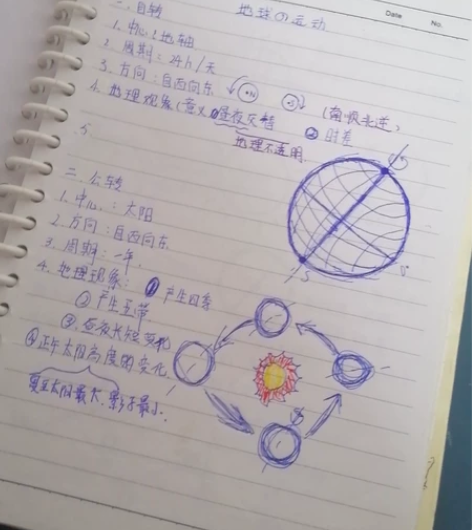 地球の运动
Date No.
一、自转
1. 中心：地轴
2. 周期：24h/天
3. 方向：自西向东 (南顺北逆)
4. 地理现象(意义) ①昼夜交替 ②时差
地理不通用
5.
二、公转
1. 中心：太阳
2. 方向：自西向东
3. 周期：一年
4. 地理现象：①产生四季
②产生五带
③昼夜长短变化
④正午太阳高度的变化
夏至太阳最大，影子最小.